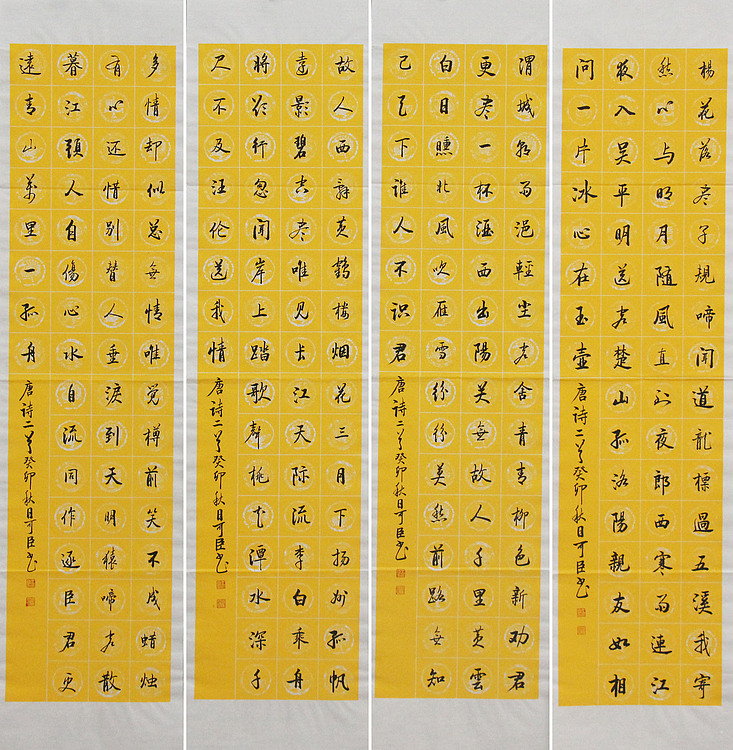 楊花落尽子規啼闻道龍標過五溪我寄
愁心与明月随風直到夜郎西寒雨連江
夜入吴平明送客楚山孤洛陽親友如相
問一片冰心在玉壺
唐诗二首癸卯秋日可臣书
渭城朝雨浥輕尘客舍青青柳色新劝君
更尽一杯酒西出陽关無故人千里黄雲
白日曛北風吹雁雪纷纷莫愁前路無知
己天下誰人不识君
唐诗二首癸卯秋日可臣书
故人西辞黄鹤楼烟花三月下扬州孤帆
遠影碧空尽唯見长江天际流李白乘舟
将欲行忽闻岸上踏歌聲桃花潭水深千
尺不及汪伦送我情
唐诗二首癸卯秋日可臣书
多情却似总無情唯觉樽前笑不成蜡烛
有心还惜别替人垂淚到天明猿啼客散
暮江頭人自傷心水自流同作逐臣君更
遠青山萬里一孤舟
唐诗二首癸卯秋日可臣书